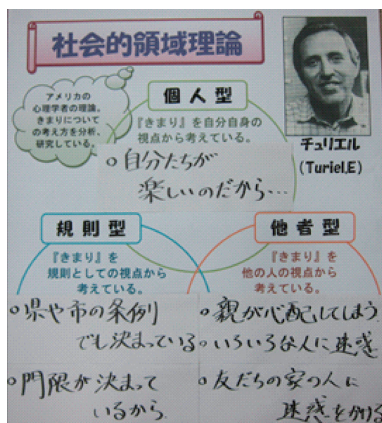 社会的領域理論
アメリカの
心理学者の理論。
きまりについて
の考え方を分析、
研究している。
個人型
『きまり』を自分自身の
視点から考えている。
チュリエル
(Turiel,E)
○自分たちが
楽しいのだから…
規則型
『きまり』を
規則としての視点から
考えている。
他者型
『きまり』を
他の人の視点から
考えている。
○県や市の条例
でも決まっている
○門限が決まって
いるから
○親が心配してしまう
○いろいろな人に迷惑
○友だちの家の人に
迷惑をかける